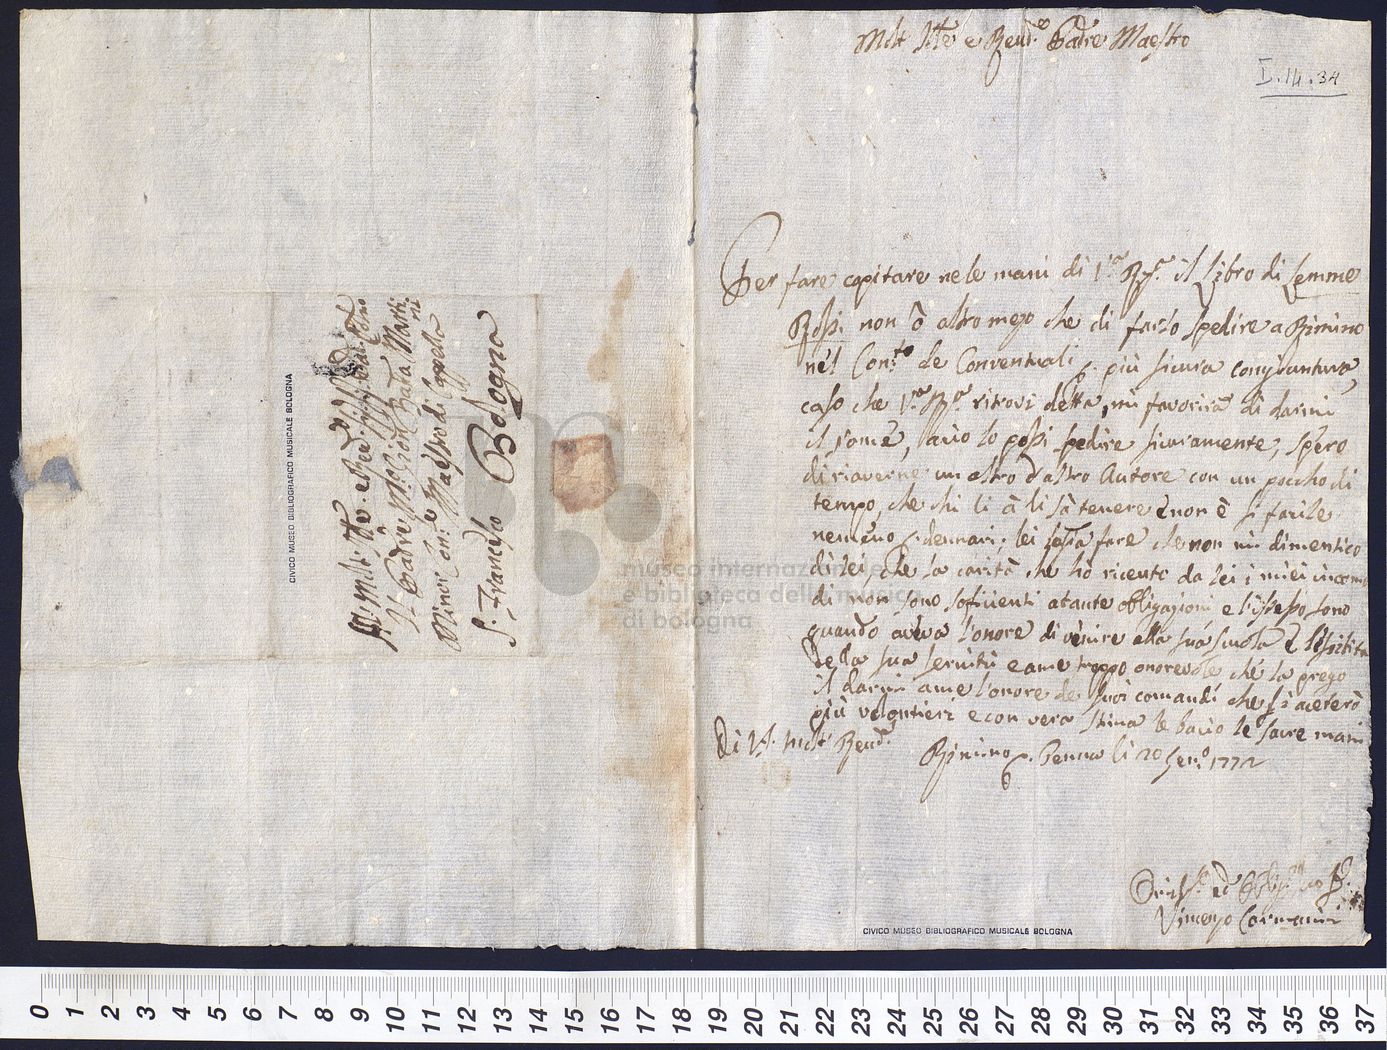 Molt Ill.re e Rev.do Padre Maestro
I.14.34
Per fare capitare nele mani di V.a R.za il Libro di Lemme
Rossi non ò altro mezo che di farlo spedire a Rimino
nel Con.to de Conventuali p. più sicura congiuntura,
caso che V.a R.a ritrovi detta, mi favorirà di darmi
il come, acciò lo possi spedire sicuramente, spero
di riaverne un altro d'altro Autore con un pocho di
tempo, che chi li à li sà tenere e non è si facile
nemeno p. dennari, lei fare che non mi dimentico
di lei, che la carità che hò riceuti da lei i miei
di non sono soficienti atante obligazioni e l'istesso sono
quando aveva l'onore di venire alla sua scuola è
della sua servitù e ame troppo onorevole che la prego
il darmi ame l'onore de suoi comandi che li aceterò
più volontieri e con vera stima le bacio le sacre mani
Di V.S. Molt Rend.
Rimino p. Penna li 20 Gen.o 1772
ed
Vincenzo Carmanini
Al Molt. Ill.re e Rev.
Il Padre M. Gion Batta Marti
ni
Minor Con.le Maestro di Cappella
S. Francesco Bologna
CIVICO MUSEO BIBLIOGRAFICO MUSICALE BOLOGNA
CIVICO MUSEO BIBLIOGRAFICO MUSICALE BOLOGNA
museo internazionale
e biblioteca della musica
di bologna
0 1 2 3 4 5 6 7 8 9 10 11 12 13 14 15 16 17 18 19 20 21 22 23 24 25 26 27 28 29 30 31 32 33 34 35 36 37